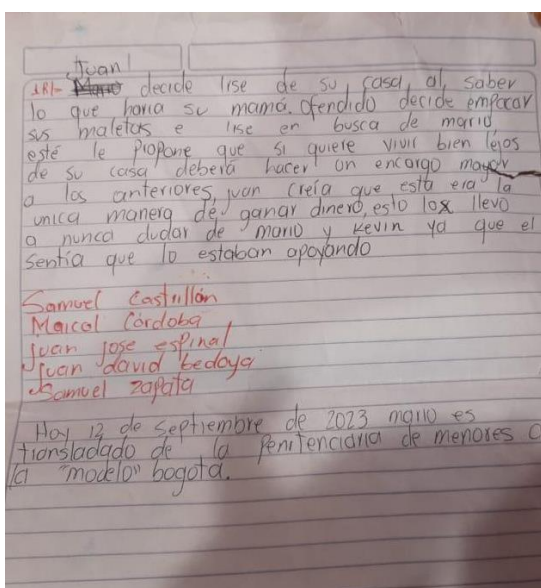 Juan
1R/- Mario decide irse de su casa, al saber
lo que haria su mamá. Ofendido decide empacar
sus maletas e irse en busca de mario,
esté le propone que si quiere vivir bien lejos
de su casa deberá hacer un encargo mayor
a los anteriores, juan creía que esta era la
unica manera de ganar dinero, esto lox llevo
a nunca dudar de mario y kevin ya que el
sentía que lo estaban apoyando
Samuel Castrillón
Maicol Córdoba
Juan jose espinal
Juan david bedoya
Samuel zapata
Hoy 12 de septiembre de 2023 mario es
transladado de la Penitenciaria de menores a
la "modelo" bogotá.